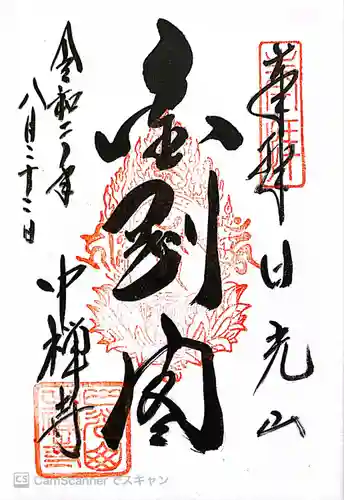 奉拝 日光山
金剛閣
令和二年
八月二十二日
中禅寺
CS CamScanner でスキャン